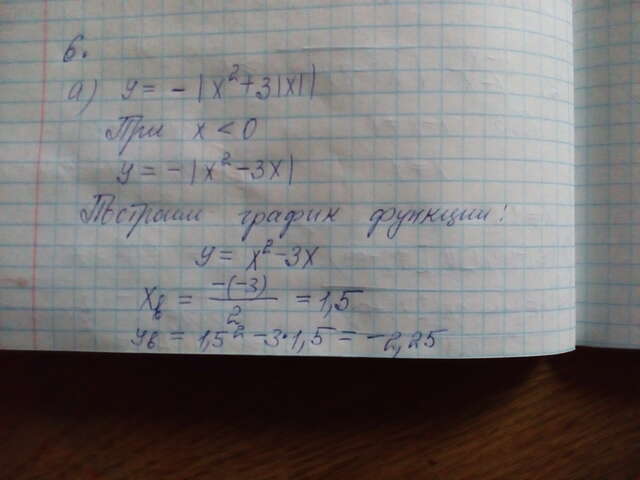 6.
а) y = - |x²+3|x||
При x < 0
y = - |x² - 3x|
Построим график функции:
y = x² - 3x
xв = -(-3)/2 = 1,5
yв = 1,5² - 3·1,5 = -2,25